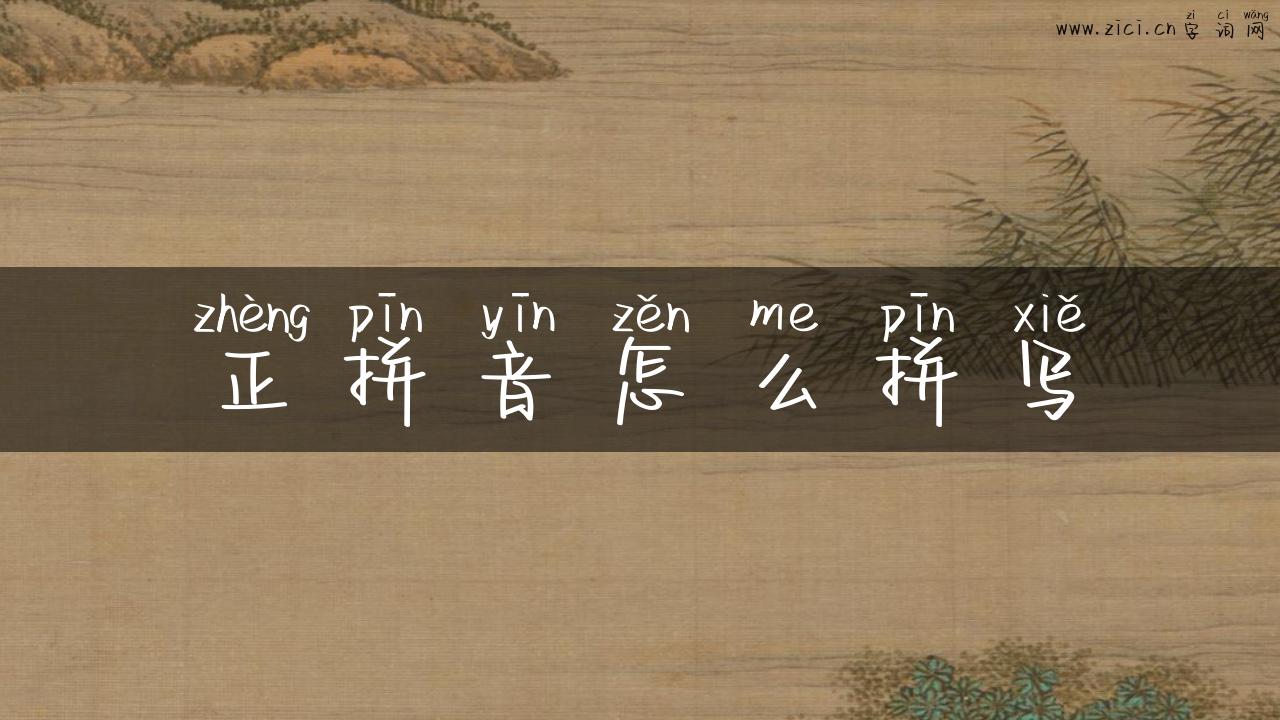 zì cí wǎng
www.zici.cn 字 词 网
zhèng pīn yīn zěn me pīn xiě
正 拼 音 怎 么 拼 写